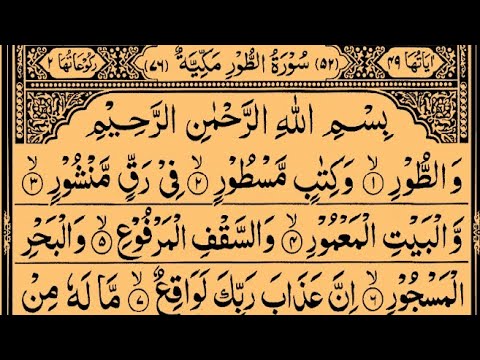 اٰيَاتُهَا ٤٩ (٥٢) سُوْرَةُ الطُّوْرِ مَكِّيَّةٌ (٧٦) رُكُوْعَاتُهَا ٢
بِسْمِ اللّٰهِ الرَّحْمٰنِ الرَّحِيْمِ
وَالطُّوْرِ ۙ﴿١﴾ وَكِتٰبٍ مَّسْطُوْرٍ ۙ﴿٢﴾ فِىْ رَقٍّ مَّنْشُوْرٍ ۙ﴿٣﴾
وَّالْبَيْتِ الْمَعْمُوْرِ ۙ﴿٤﴾ وَالسَّقْفِ الْمَرْفُوْعِ ۙ﴿٥﴾ وَالْبَحْرِ
الْمَسْجُوْرِ ۙ﴿٦﴾ اِنَّ عَذَابَ رَبِّكَ لَوَاقِعٌ ۙ﴿٧﴾ مَّا لَهٗ مِنْ